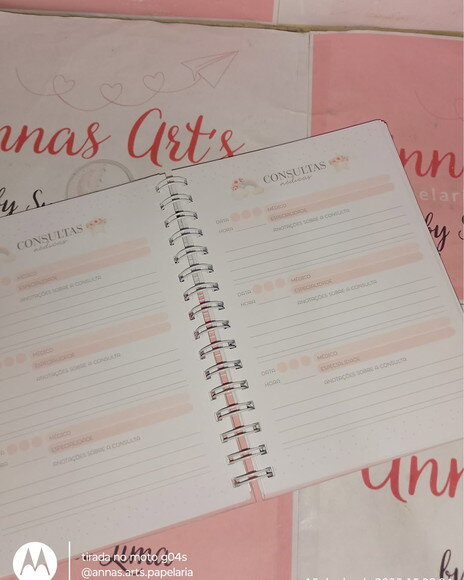 nnas Art's
by S
nnas
elar
by
CONSULTAS
médicas
MÉDICO
ESPECIALIDADE
ANOTAÇÕES SOBRE A CONSULTA
MÉDICO
ESPECIALIDADE
ANOTAÇÕES SOBRE A CONSULTA
MÉDICO
ESPECIALIDADE
ANOTAÇÕES SOBRE A CONSULTA
CONSULTAS
médicas
DATA MÉDICO
ESPECIALIDADE
HORA ANOTAÇÕES SOBRE A CONSULTA
DATA MÉDICO
ESPECIALIDADE
HORA ANOTAÇÕES SOBRE A CONSULTA
DATA MÉDICO
ESPECIALIDADE
HORA ANOTAÇÕES SOBRE A CONSULTA
Anna
by
Lima
tirada no moto g04s
@annas.arts.papelaria